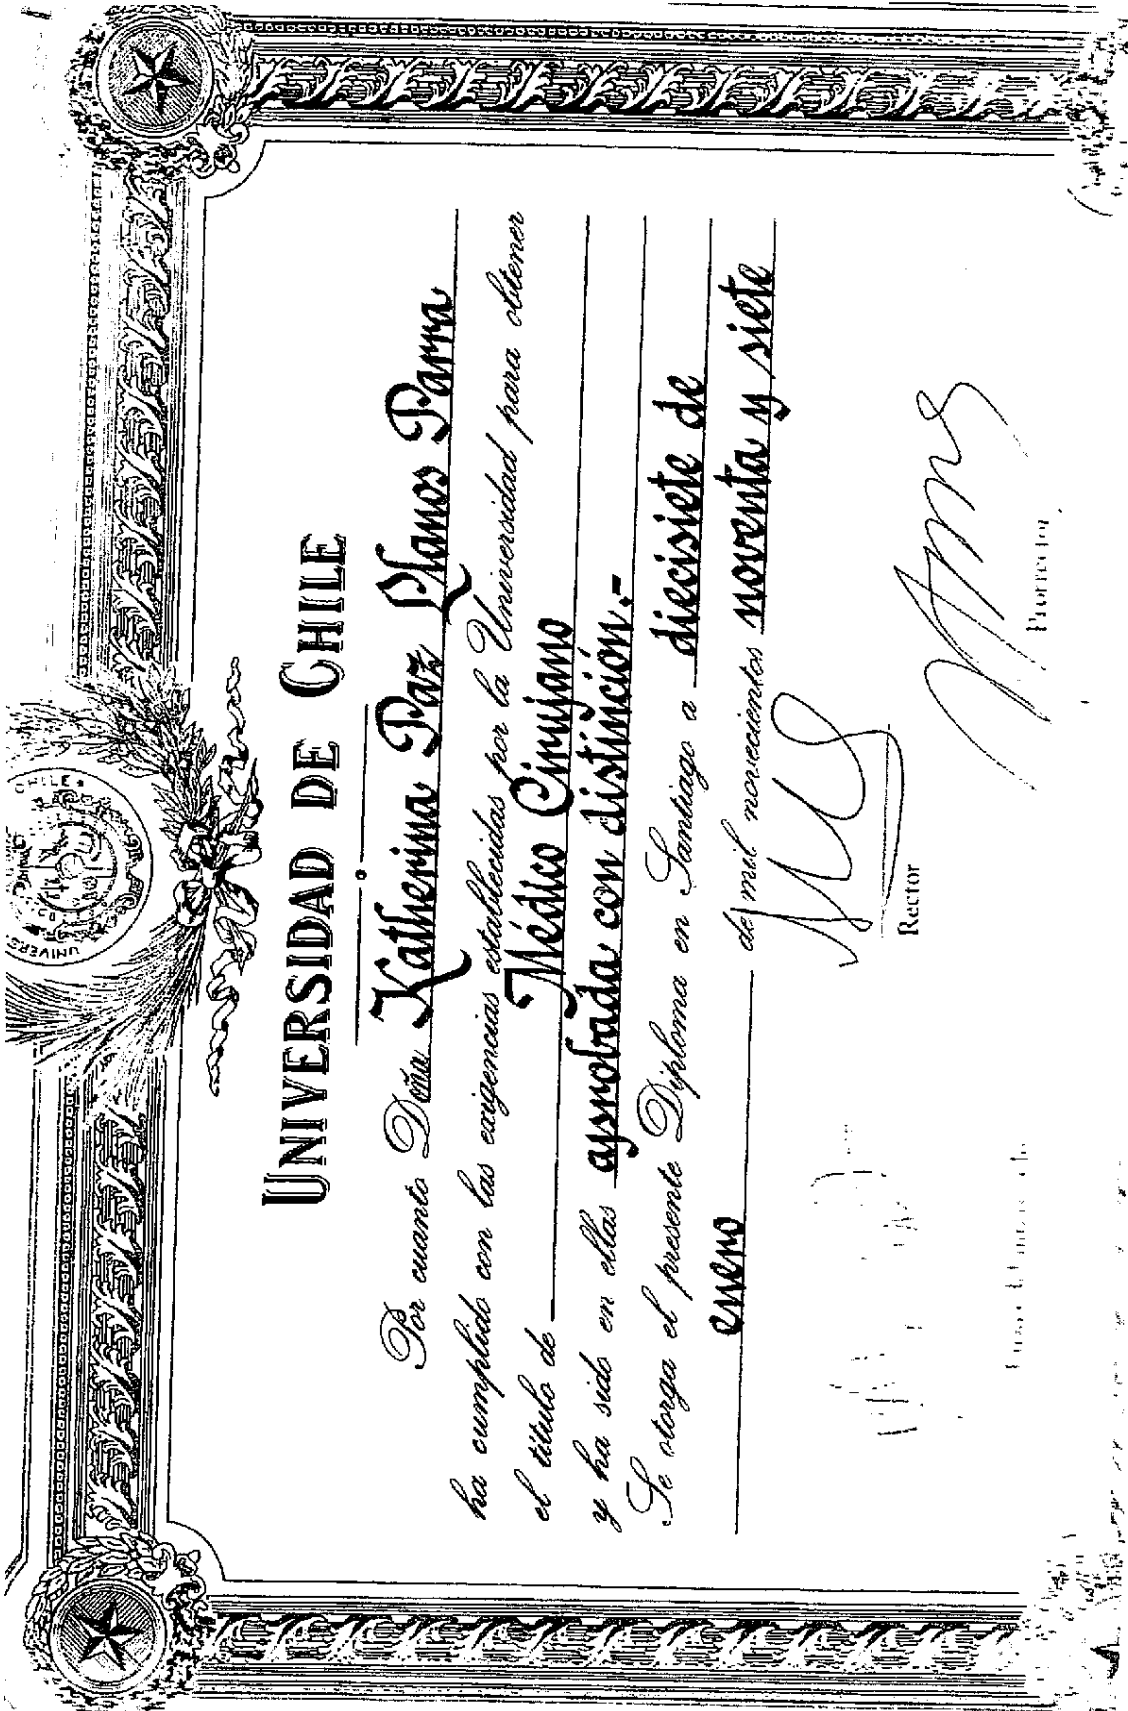 UNIVERSIDAD DE CHILE
Por cuanto Doña Katherina Paz Llanos Parra
ha cumplido con las exigencias establecidas por la Universidad para obtener
el título de Médico Cirujano
y ha sido en ellas aprobada con distinción.-
Se otorga el presente Diploma en Santiago a diecisiete de
enero de mil novecientos noventa y siete
Rector
Prorrector